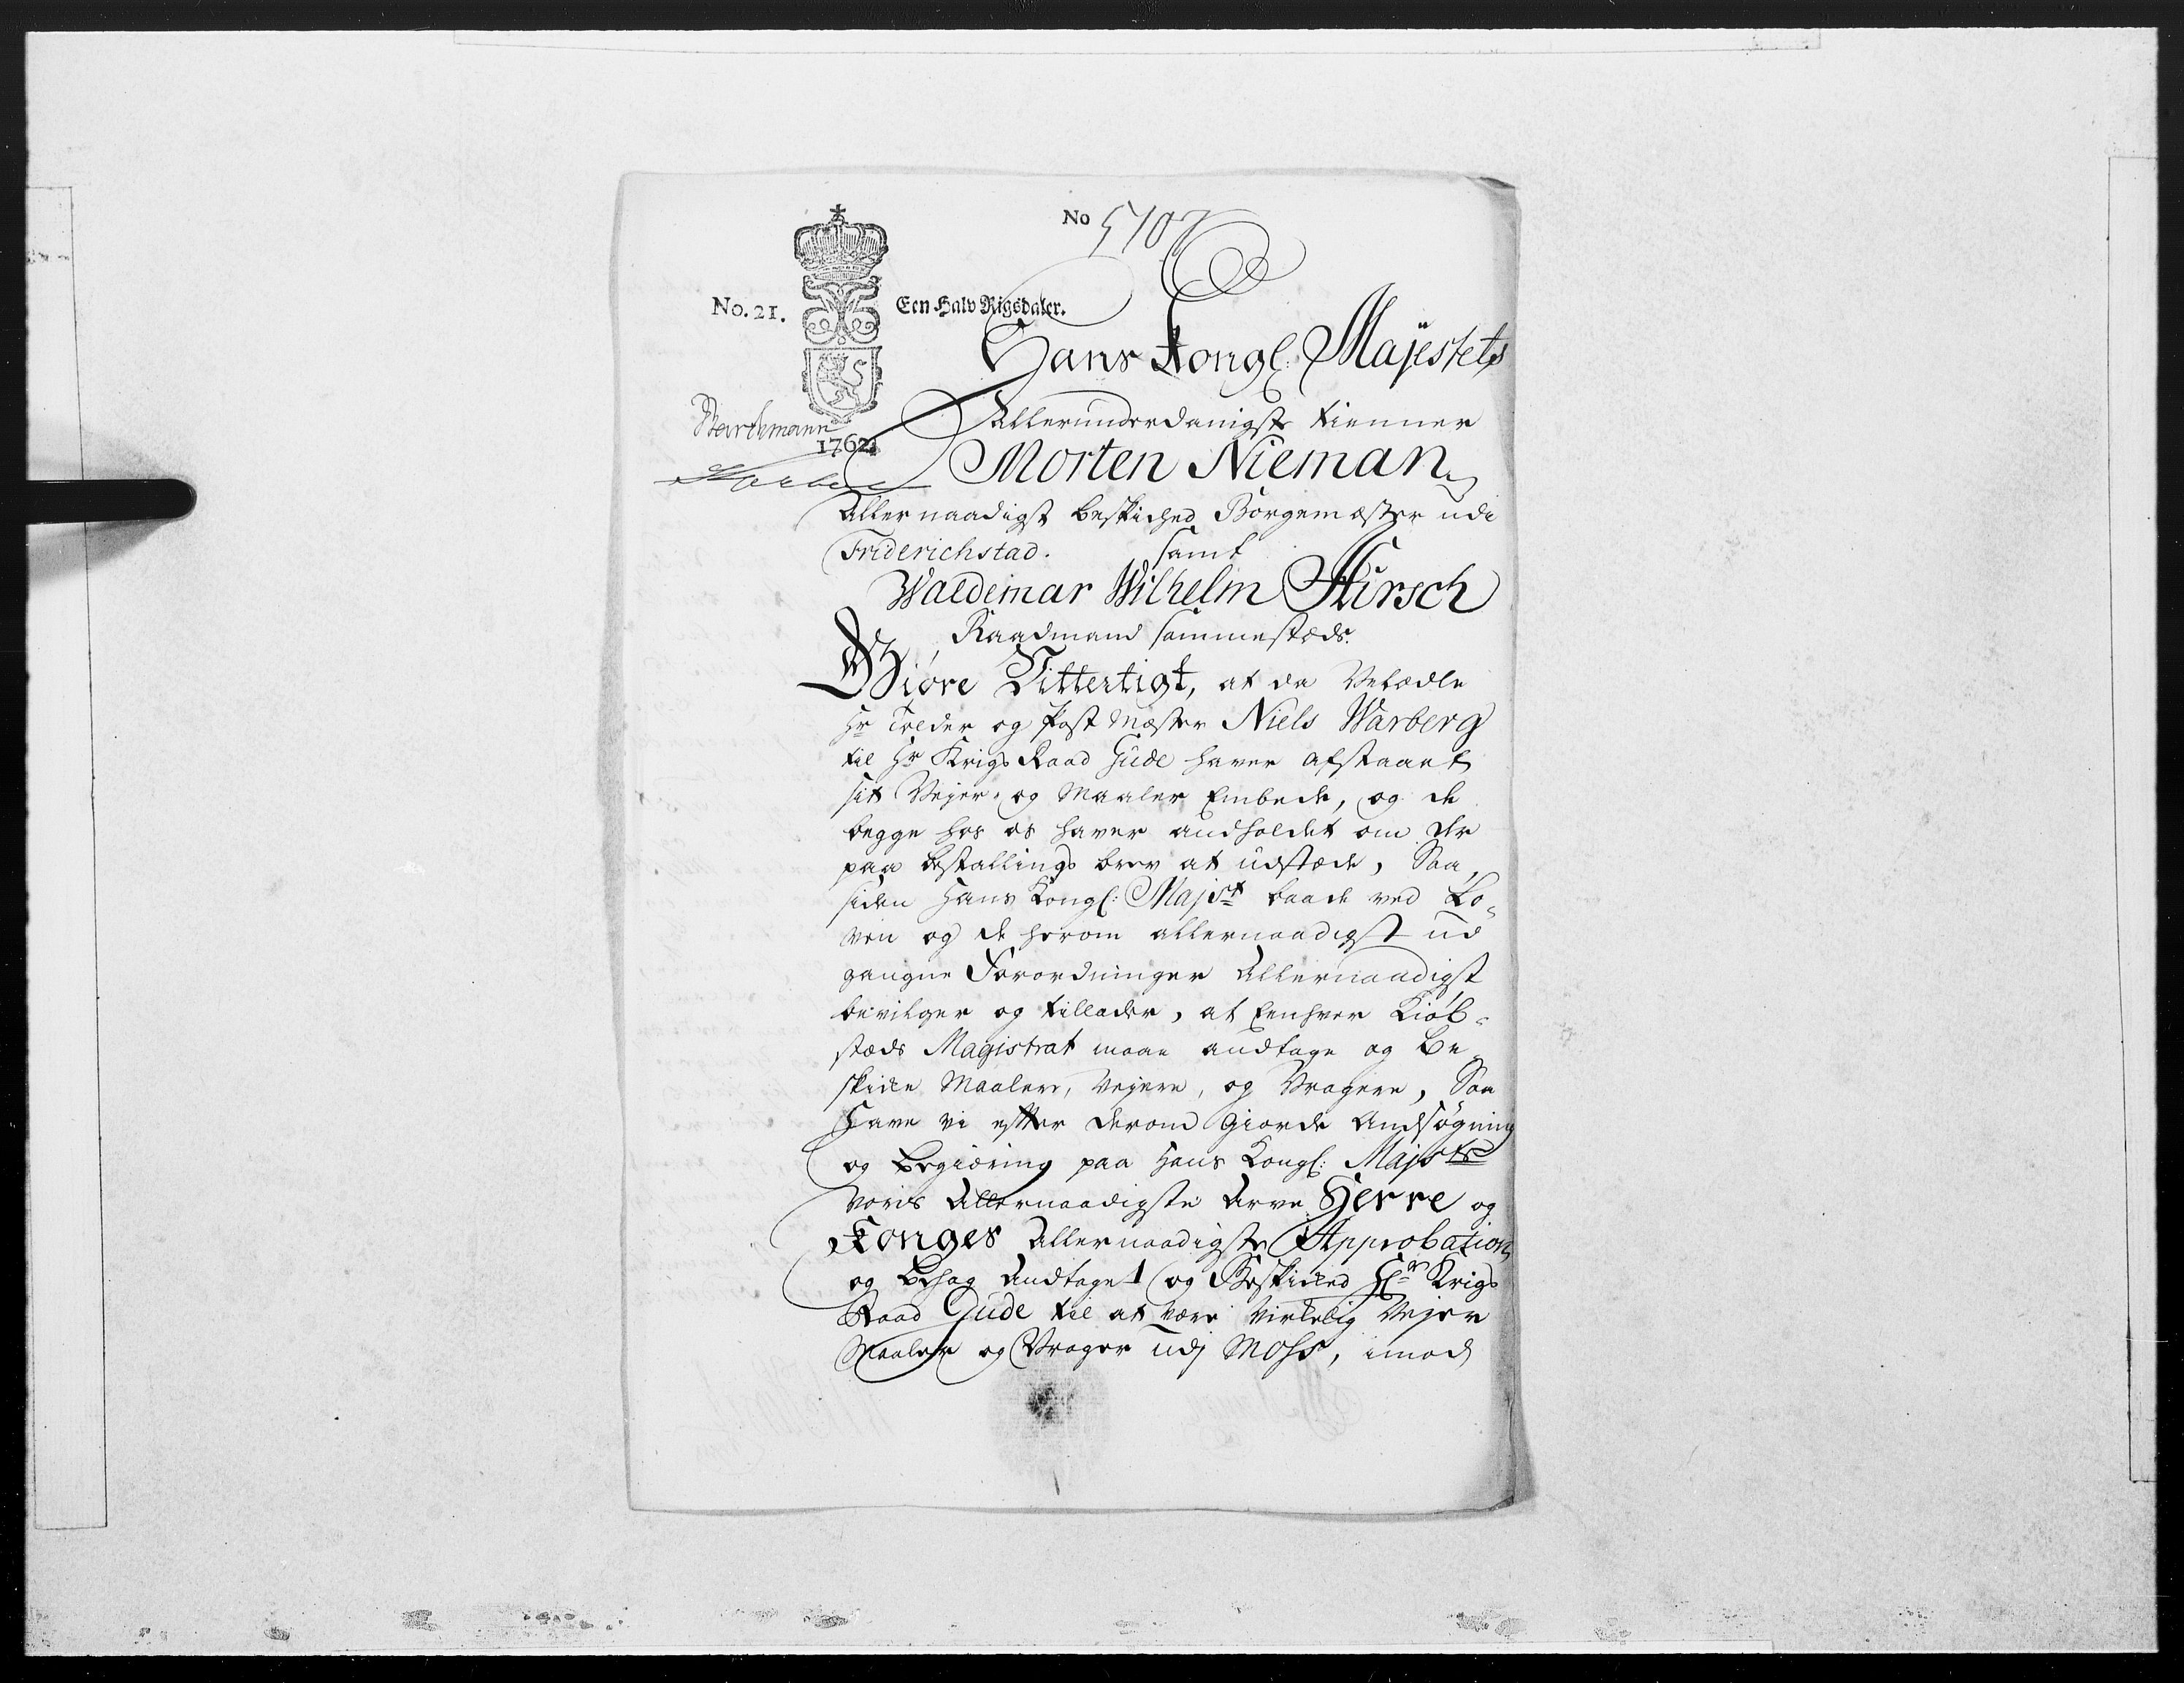 No 5107
No. 21.
Een Halv Rigsdaler.
Hans Kongl: Majestets
Allerunderdanigste tienner
1762
Morten Nieman
Allernaadigst beskicked Borgemæster udi
Friderichstad. samt
Waldemar Wilhelm Hirsch
Raadmand sammestæds.
Giøre Vitterligt, at da Velædle
Hr Tolder og Post Mæster Niels Warberg
til Hr Krigs Raad Gude haver afstaaet
sit Vejer- og Maaler Embede, og de
begge hos os haver andholdet om der
paa bestallings brev at udstæde, Saa
siden Hans Kongl: Majst baade ved Lo-
ven og de herom allernaadigst ud
gangne Forordninger Allernaadigst
bevilger og tillader, at Eenhver Kiøb-
stæds Magistrat maae andtage og Be-
skicke Maalere, Vejere, og Vragere, Saa
Have vi efter derom giorde Andsøgning
og begiæring paa Hans Kongl: Majsts
voris Allernaadigste Arve Herre og
Konges Allernaadigste Approbation
og behag Andtaget og Beskicked Hr Krigs
Raad Gude til at være virkelig Vejer
Maaler og Vrager udj Moss, imod